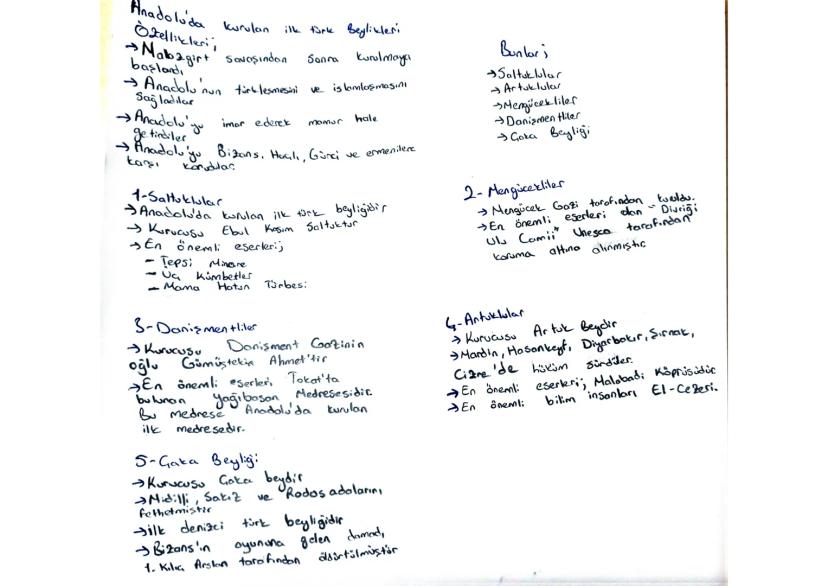 Anadolu'da kurulan ilk türk Beylikleri
Özellikleri;
→ Malazgirt savaşından sonra kurulmaya
başlandı
→ Anadolu'nun türkleşmesini ve islamlaşmasını
sağladılar
→ Anadolu'yu imar ederek mamur hale
getirdiler
→ Anadolu'yu Bizans, Haçlı, Gürci ve ermenilere
karşı korudular
Bunlar;
→ Saltuklular
→ Artuklular
→ Mengücekliler
→ Danişmentliler
→ Çaka Beyliği
1-Saltuklular
→ Anadolu'da kurulan ilk türk beyliğidir
→ Kurucusu Ebul Kasım Saltuktur
→ En önemli eserleri;
- Tepsi Minare
- Üç Kümbetler
- Mama Hatun Türbesi
2- Mengücekliler
→ Mengücek Gazi tarafından kuruldu.
→ En önemli eserleri olan Divriği
Ulu Camii" Unesco tarafından
koruma altına alınmıştır
3-Danişmentliler
→ Kurucusu Danişment Gazinin
oğlu Gümüştekin Ahmet'tir
→ En önemli eserleri Tokat'ta
bulunan yağıbasan Medresesidir.
Bu medrese Anadolu'da kurulan
ilk medresedir.
4-Artuklular
→ Kurucusu Artuk Beydir
→ Mardin, Hasankeyf, Diyarbakır, Şırnak,
Cizre'de hüküm sürdüler.
→ En önemli eserleri; Malabadi Köprüsüdür
→ En önemli bilim insanları El-Cezeri.
5-Çaka Beyliği
→ Kurucusu Çaka beydir
→ Midilli, Sakız ve Rodos adalarını
fethetmiştir
→ ilk denizci türk beyliğidir
→ Bizans'ın oyununa gelen damadı,
1. Kılıç Arslan tarafından öldürtülmüştür